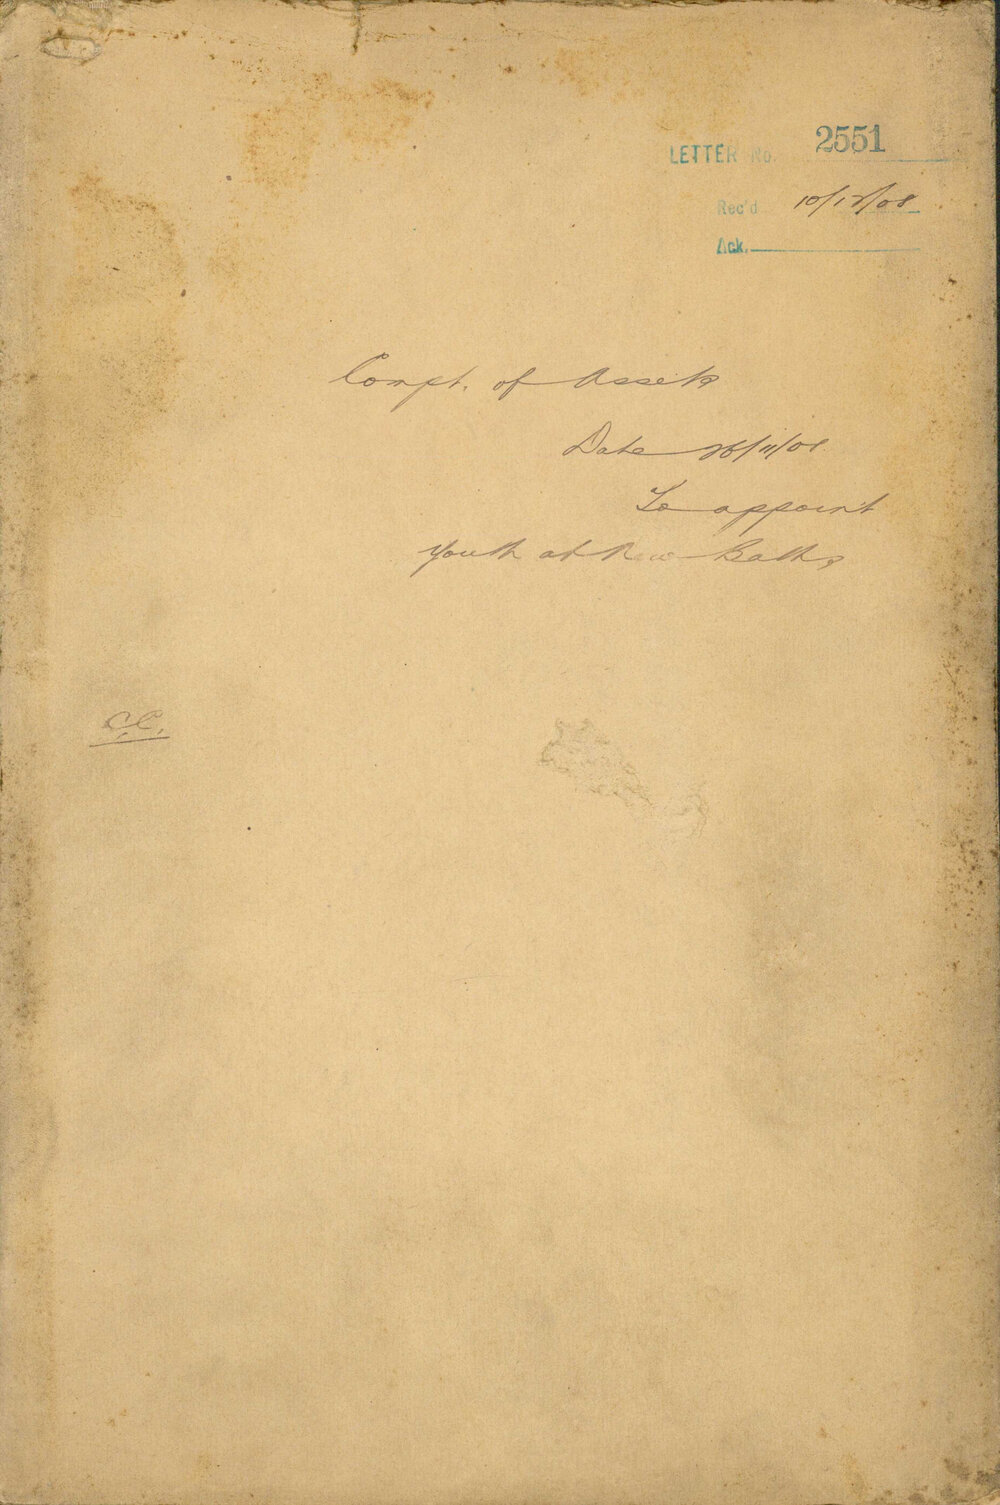 LETTER No. 2551
Rec'd 10/12/08
Ack.
Compt. of Assets
Date 26/11/08
To appoint
youth at New Baths
C.C.